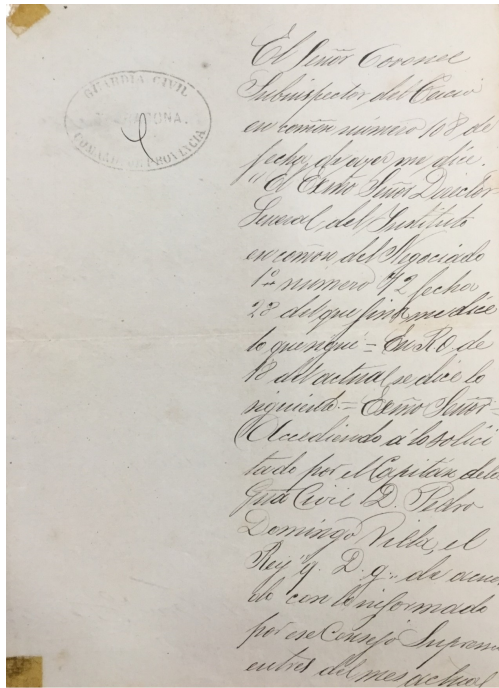 GUARDIA CIVIL
COMAND. DE PROVINCIA
El Señor Coronel
Subinspector del Tercio
en comón número 108 de
fecha de ayer me dice.
"El Exmo Señor Director
General del Instituto
en comón del Negociado
1º numero 72 fecha
28 del que fina me dice
lo que sigue = En R O de
12 del actual se dice lo
siguiente = Exmo Señor =
Accediendo á lo solici
tado por el Capitán de la
Gua Civil D. Pedro
Domingo Villa, el
Rey q. D. g. de acuer
do con lo informado
por ese Consejo Supremo
en tres del mes actual